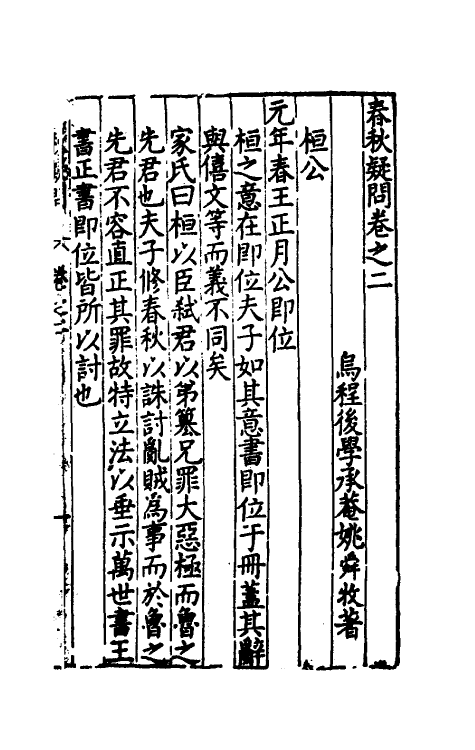 春秋疑問卷之二
烏程後學承菴姚舜牧著
桓公
元年春王正月公即位
桓之意在即位夫子如其意書即位于冊蓋其辭
與僖文等而義不同矣
家氏曰桓以臣弒君以弟簒兄罪大惡極而魯之
先君也夫子修春秋以誅討亂賊為事而於魯之
先君不容直正其罪故特立法以垂示萬世書王
書正書即位皆所以討也